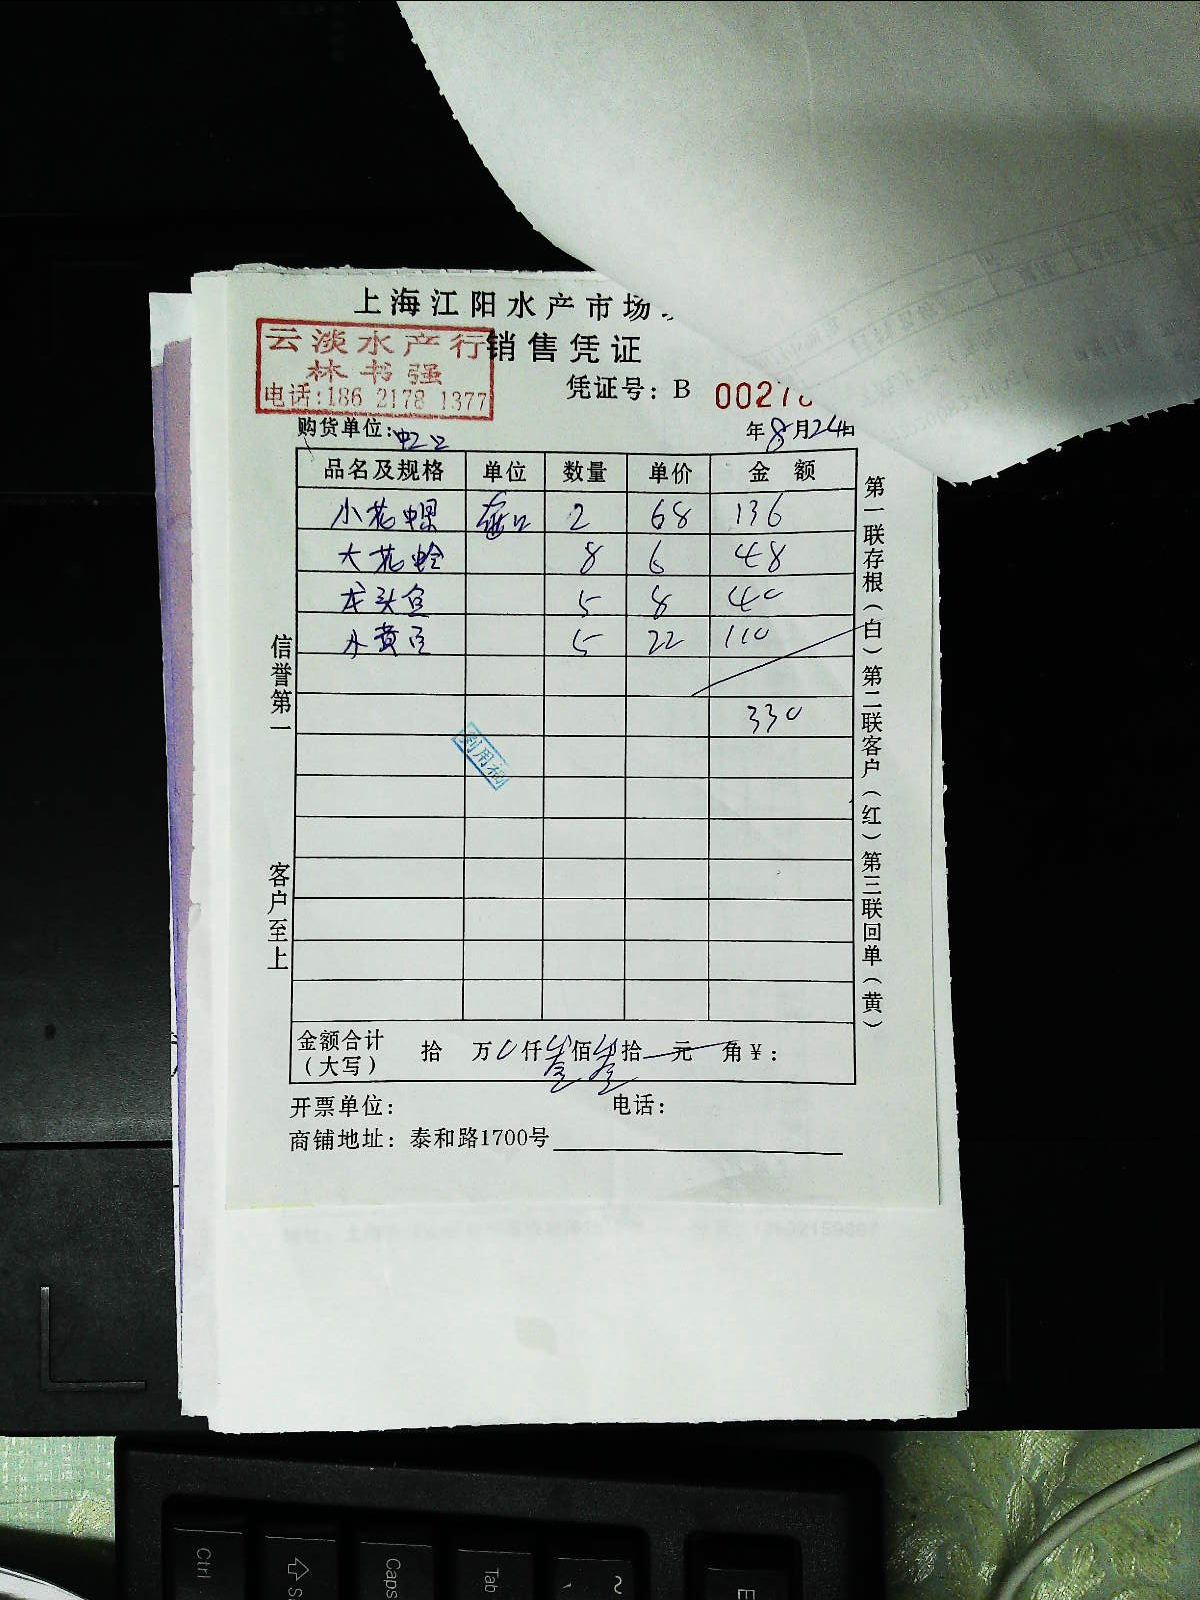 上海江阳水产市场
云淡水产行
林书强
电话:186 2178 1377
销售凭证
凭证号: B 0027
购货单位: 虹口
年8月24日
品名及规格 单位 数量 单价 金额
小花螺 2 68 136
大花蛤 8 6 48
龙头鱼 5 8 40
小黄鱼 5 22 110
330
信誉第一
客户至上
第一联存根(白)第二联客户(红)第三联回单(黄)
金额合计
(大写) 拾 万 0 仟 叁 佰 叁 拾 元 角 ¥:
开票单位: 电话:
商铺地址: 泰和路1700号
Ctrl
Caps
Tab
~